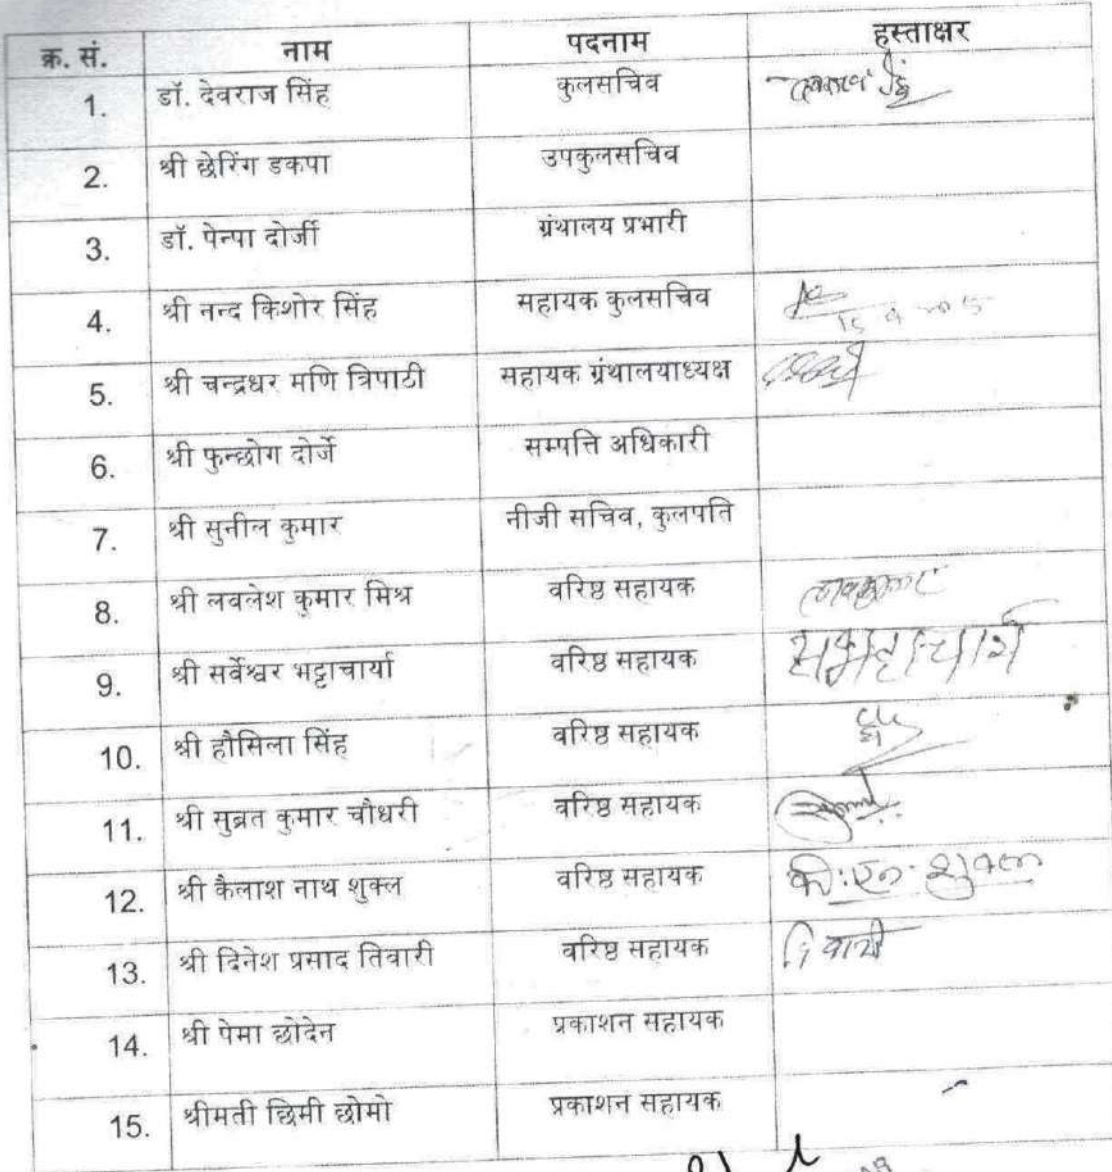 क्र. सं. नाम पदनाम हस्ताक्षर
1. डॉ. देवराज सिंह कुलसचिव
2. श्री छेरिंग डकपा उपकुलसचिव
3. डॉ. पेन्पा दोर्जी ग्रंथालय प्रभारी
4. श्री नन्द किशोर सिंह सहायक कुलसचिव
5. श्री चन्द्रधर मणि त्रिपाठी सहायक ग्रंथालयाध्यक्ष
6. श्री फुन्छोग दोर्जे सम्पत्ति अधिकारी
7. श्री सुनील कुमार नीजी सचिव, कुलपति
8. श्री लवलेश कुमार मिश्र वरिष्ठ सहायक
9. श्री सर्वेश्वर भट्टाचार्या वरिष्ठ सहायक
10. श्री हौसिला सिंह वरिष्ठ सहायक
11. श्री सुब्रत कुमार चौधरी वरिष्ठ सहायक
12. श्री कैलाश नाथ शुक्ल वरिष्ठ सहायक के.एन. शुक्ल
13. श्री दिनेश प्रसाद तिवारी वरिष्ठ सहायक
14. श्री पेमा छोदेन प्रकाशन सहायक
15. श्रीमती छिमी छोमो प्रकाशन सहायक